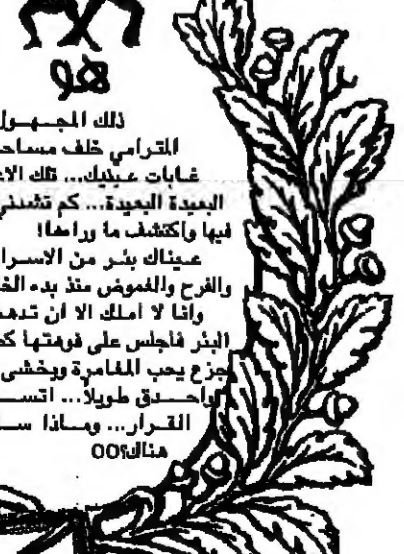 هو
ذلك المجهول
المترامي خلف مساحـ
غابات عينيك... تلك الاعـ
البعيدة البعيدة... كم تشدني
فيها واكتشف ما وراءها!
عيناك بئر من الاسرا
والفرح والغموض منذ بدء الخـ
وانا لا املك الا ان تدهـ
البئر فأجلس على فوهتها كطـ
جزع يحب المغامرة ويخشى
واحدق طويلاً... اتسـ
القرار... وماذا سـ
هناك؟OO